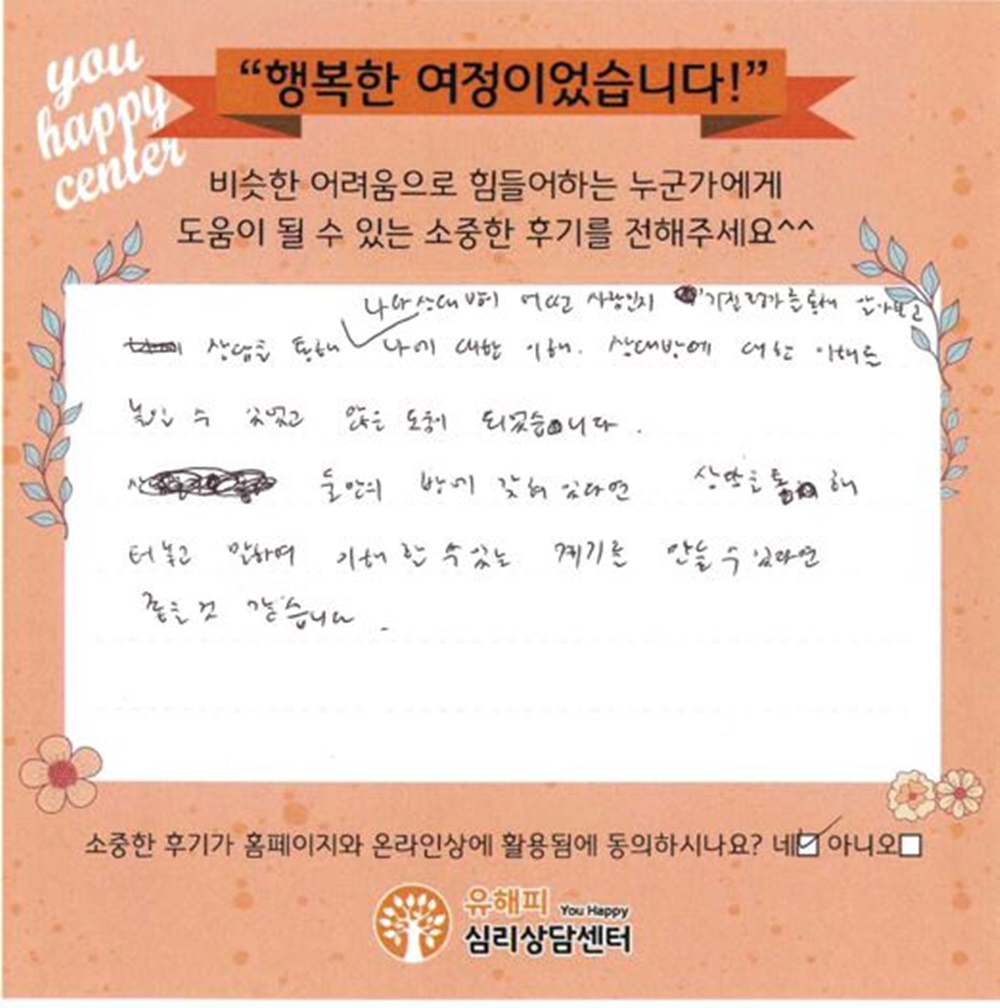 you
happy
center
“행복한 여정이었습니다!”
비슷한 어려움으로 힘들어하는 누군가에게
도움이 될 수 있는 소중한 후기를 전해주세요^^
나와 상대방이 어떤 사람인지 기질평가를 통해 알아보고
상담을 통해 나에 대한 이해. 상대방에 대한 이해를
높일 수 있었고 많은 도움이 되었습니다.
둘만의 방에 갖혀 있다면 상담을 통해
터놓고 말하며 이해 할 수 있는 계기를 만들 수 있다면
좋을 것 같습니다.
소중한 후기가 홈페이지와 온라인상에 활용됨에 동의하시나요? 네 아니오
유해피 You Happy
심리상담센터